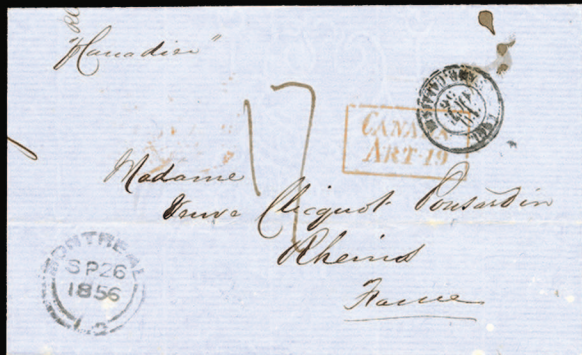 "Canadian"
17
CANADA
ART. 19
Madame
Veuve Clicquot Ponsardin
Rheims
France
MONTREAL
SP 26
1856
L.C